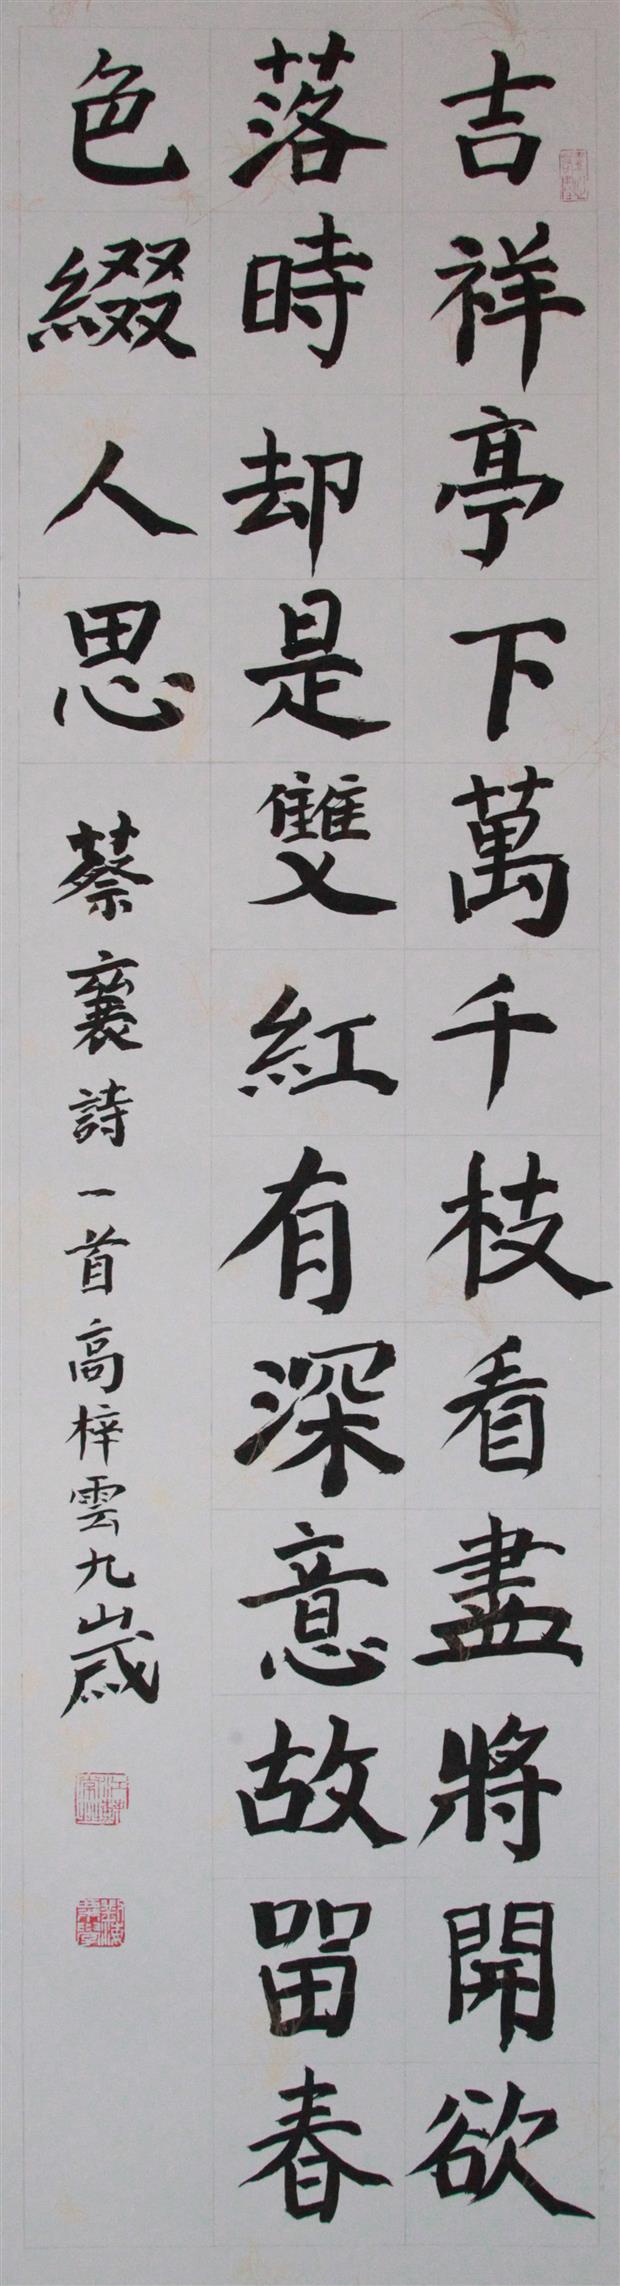 吉祥亭下萬千枝看盡將開欲
落時却是雙紅有深意故留春
色綴人思
蔡襄詩一首高梓雲九歲